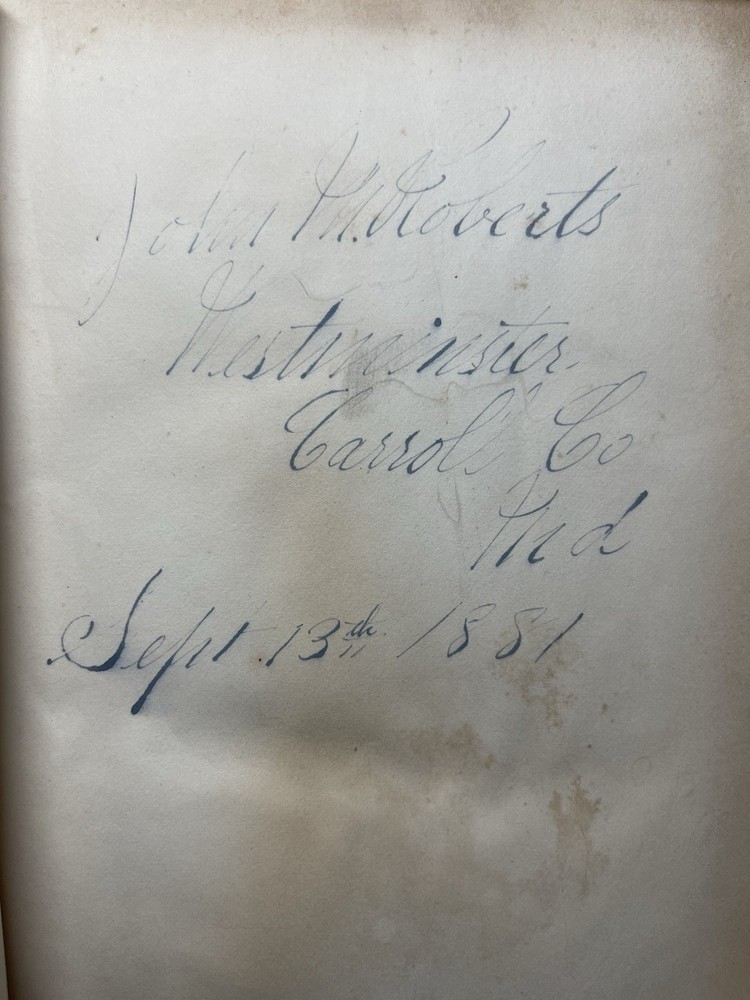 John M. Roberts
Westminster
Carroll Co
Md
Sept. 13th 1881